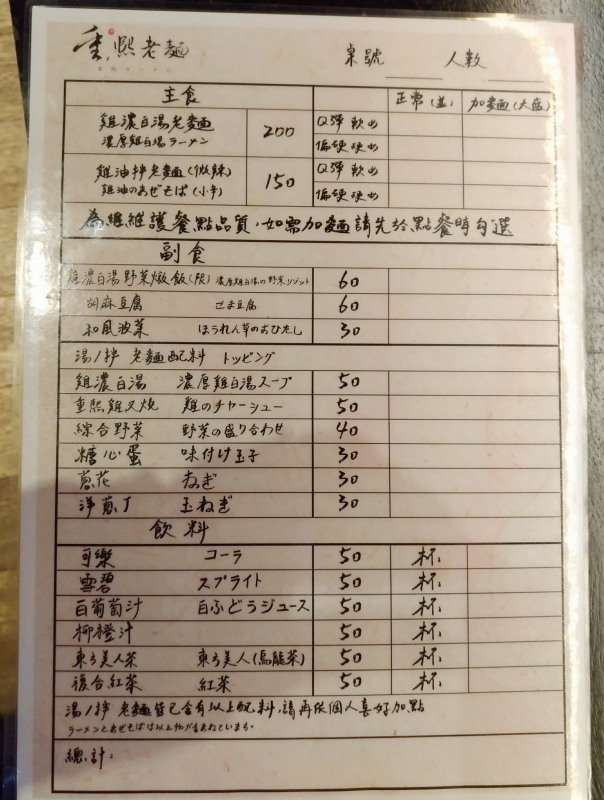 重熙老麵
桌號 人數
主食 正常(並) 加麵(大盛)
雞濃白湯老麵 200 Q彈 軟め
濃厚鶏白湯ラーメン 偏硬 硬め
雞油拌老麵(微辣) 150 Q彈 軟め
鶏油のあぜそば(小辛) 偏硬 硬め
為維維護餐點品質,如需加麵請先於點餐時勾選
副食
雞濃白湯野菜燉飯(限) 濃厚鶏白湯の野菜リゾット 60
胡麻豆腐 ごま豆腐 60
和風波菜 ほうれん草のおひたし 30
湯/拌 老麵配料 トッピング
雞濃白湯 濃厚鶏白湯スープ 50
重熙雞叉燒 鶏のチャーシュー 50
綜合野菜 野菜の盛り合わせ 40
糖心蛋 味付け玉子 30
蔥花 ねぎ 30
洋蔥丁 玉ねぎ 30
飲料
可樂 コーラ 50 杯
雪碧 スプライト 50 杯
白葡萄汁 白ぶどうジュース 50 杯
柳橙汁 50 杯
東方美人茶 東方美人(烏龍茶) 50 杯
複合紅茶 紅茶 50 杯
湯/拌 老麵皆已含有以上配料,請再依個人喜好加點
總計: